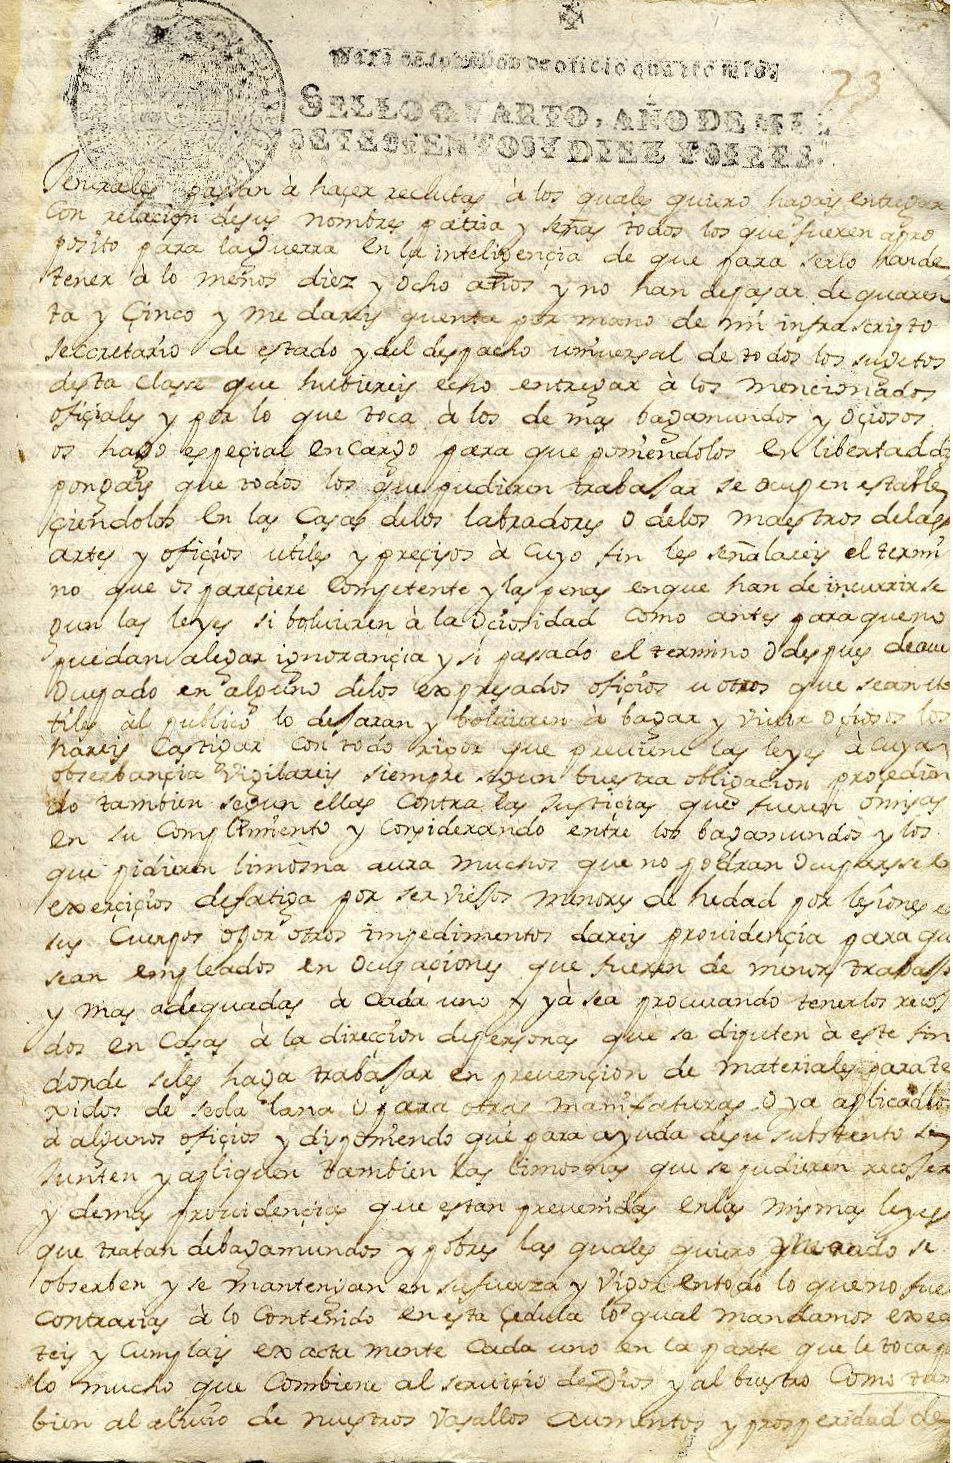 23
de oficio quarto mrs.
SELLO QVARTO, AÑO DE MIL
SETECIENTOS Y DIEZ Y SIETE.
Jenerales pasan à haçer reclutas à los quales quiero hagais entregar
Con relaçion desus nombres patria y señas todos los que fueren apro
posito para la guerra en la inteligençia de que para serlo hande
tener à lo menos diez y ocho años y no han depasar de quaren
ta y Çinco y me dareis quenta por mano de mi infrascripto
secretario de estado y del despacho universal de todos los sugetos
desta Clase que hubiereis echo entregar à los mencionados
ofiçiales y por lo que toca à los de mas bagamundos y oçiosos
os hago espeçial encargo para que poniendolos en libertad dis
pongais que todos los que pudieren trabajar se ocupen estable
çiendolos en las Casas delos labradores o delos maestros delas
artes y ofiçios utiles y preçisos à cuyo fin les señalareis el termi
no que os pareçiere Competente y las penas enque han de incurrir se
gun las leyes si bolvieren à la oçiosidad Como antes para queno
puedan alegar ignorançia y si passado el termino o despues de aver
ocupado en alguno delos expresados ofiçios u otros que sean u
tiles àl publico lo dejaran y bolvieren à bagar y vivir oçiosos los
hareis Castigar con todo rigor que previene las leyes à cuya
obserbançia vigilareis siempre segun buestra obligacion proçedien
do tambien segun ellas Contra las Justiçias que fueren omisas
en su Complimiento y Considerando entre los bagamundos y los
que pidieren limosna aura muchos que no podran ocuparse en
exerçiçios defatiga por ser viejos menores de hedad por lesiones en
sus Cuerpos o por otros impedimentos dareis providençia para que
sean empleados en ocupaçiones que fueren de menor trabajo
y mas adequadas à Cada uno y yà sea procurando tenerlos recoji
dos en Casas à la direccion depersonas que se diputen à este fin
donde seles haga trabajar en prevençion de materiales para te
xidos de seda lana o para otras manifaturas o ya aplicadlos
à algunos ofiçios y disponiendo que para ayuda desu substento se
Junten y apliquen tambien las limosnas que se pudieren recojer
y demas providençias que estan prevenidas enlas mismas leyes
que tratan debagamundos y pobres las quales quiero que todo se
obserben y se mantengan en su fuerza y vigor entodo lo queno fuere
contrarias à lo Contenido en esta Çedula lo qual mandamos execu
teis y Cumplais exactamente Cada uno en la parte que le toca por
lo mucho que Combiene al serviçio de Dios y al buestro Como tan
bien al alivio de nuestros vasallos aumentos y prosperidad de